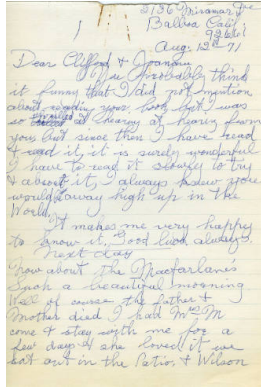 2136 Miramar Dr
Balboa Calif
92661
Aug. 12th 71
Dear Clifford & Joanna
You probably think
it funny that I did not mention
about reading your book but I was
so at hearing from
you, but since then I have read
& read it, it is surely wonderful
I have to read it slowly to try
& about it, I always knew you
would away high up in the
World,
It makes me very happy
to know it, Good luck always
next day
Now about the Macfarlanes
Such a beautiful morning
Well of course the father &
Mother died I had Mrs M
come & stay with me for a
few days & she loved it we
eat out in the Patio, & Wilson